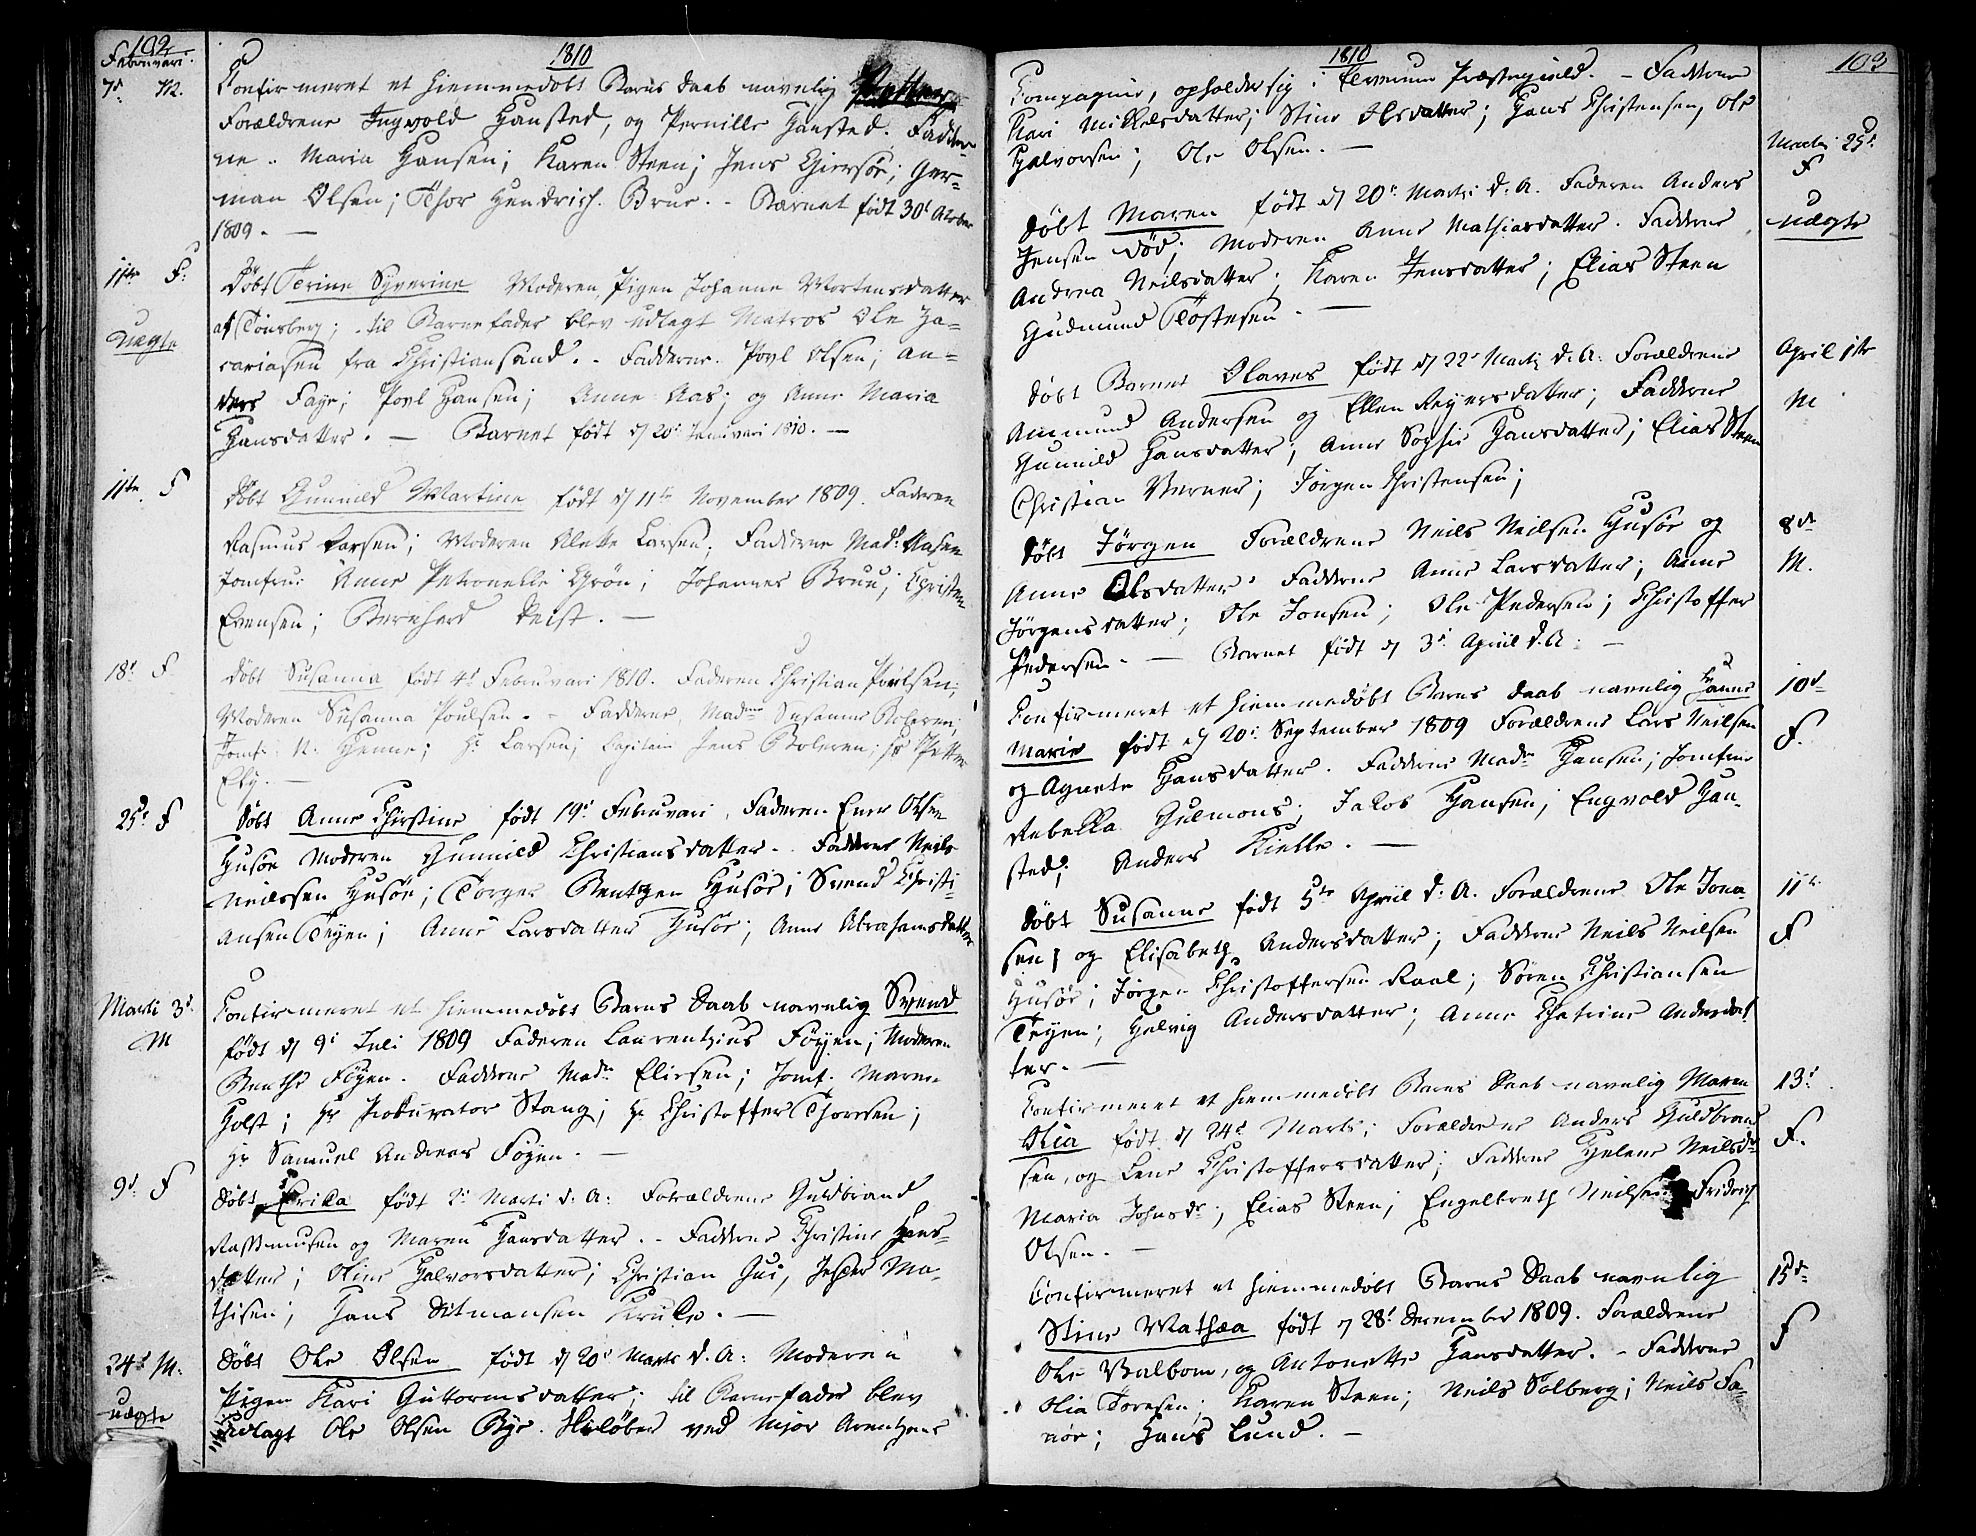 102
1810
Februari.
7d. M.
Confirmeret et hiemmedøbt Barns daab navnlig
Forældrene Ingvold Hansted, og Pernille Hansted. Fadder-
ne. Maria Hansen; Karen Steen; Jens Giersøe; Her-
man Olsen; Thor Hendrich. Brur. - Barnet født 30d
1809. —
11te F.
Døbt Terine Syverine Moderen, Pigen Johanne Mortensdatter
uægte
af Tønsberg; til Barnefader blev udlagt Matros Ole Za-
cariasen fra Christiansand. - Fadderne. Povl Olsen; An-
ders Faye; Povl Hansen; Anne Aas; og Anne Maria
Hansdatter. — Barnet født d 20d Januari 1810. —
11te F
Døbt Gunnild Martine født d 11te November 1809. Faderen
Rasmus Larsen; Moderen Alette Larsen. Fadderne Mad:
Jomfrue Anne Petronelle Grøn; Johannes Bruu; Christen
Evensen; Bernhard Deist. —
18d F
Døbt Susanna født 4d Februvari 1810. Faderen Christian Poulsen;
Moderen Susanna Poulsen. - Fadderne, Madme Susanne Boleren;
Jomfr: N. Henne; Hr Larsen; Capitain Jens Boleren; Hr Petter
Eky. —
25d F
Døbt Anne Christine født 19d Februvari, Faderen Ener Olsen
Husøe Moderen Gunnild Christiansdatter. - Fadderne Neils
Neilssen Husøe; Torger Bentzen Husøe; Svend Christi-
ansen Teyen; Anne Larsdatter Husøe; Anne Abrahamsdatter
Marti 3d
M
Confirmeret et hiemmedøbt Barns Daab navnlig Svend
født d 9d Juli 1809 Faderen Laurentzius Føyen; Moderen
Benthe Føyen. Fadderne Madm Eliesen; Jomf. Maren
Holst; Hr Prokurator Stang; Hr Christoffer Thoresen;
Hr Samuel Andreas Føyen. —
9d F
Døbt Erika født 2d Marti d. A: Forældrene Guldbrand
Rassmusen og Maren Hansdatter. - Fadderne Christine Hans-
datter; Oline Halvorsdatter; Christian Gui, Jesper Ma-
thisen; Hans Ditmansen Krukle. —
24d M.
uægte
Døbt Ole Olsen født d 20d Marti d. A: Moderen
Pigen Kari Guttormsdatter; til Barnefader blev
udlagt Ole Olsen Bye. Skiløber ved Major Arentzens
1810
103
Compagnie, opholder sig i Elverum Præstegield. - Fadderne
Kari Mikkelsdatter; Stine Olsdatter; Hans Christensen, Ole
Halvorsen; Ole Olsen. —
Marti 25d
F
uægte
døbt Maren født d 20d Marti d. A. Faderen Anders
Jensen død; Moderen Anne Mathiasdatter. Fadderne
Andrea Neilsdatter; Karen Jensdatter; Elias Steen
Gudmund Tostesen. —
April 1te
M
døbt Barnet Olaves født d 22d Marti d. A: Forældrene
Ammund Andersen og Ellen Reyersdatter; Fadderne
Gunnild Hansdatter; Anne Sophie Hansdatter; Elias Steen
Christian Verner; Jørgen Christensen;
8de
M.
døbt Jørgen Forældrene Neils Neilsen Husøe og
Anne Olsdatter. Fadderne Anne Larsdatter; Anne
Jørgensdatter; Ole Jonsen; Ole Pedersen; Christoffer
Pedersen. — Barnet født d 3d April d. A: —
10d
F.
Confirmeret et hiemmedøbt Barns daab navnlig Hanne
Marie født d 20d September 1809 Forældrene Lars Neilsen
og Agnete Hansdatter. Fadderne Madm Hansen; Jomfrue
Rebekka Gulmons; Jakob Hansen; Engvold Han-
sted; Anders Kielle. —
11te
F
døbt Susanne født 5te April d. A. Forældrene Ole Jona-
sen; og Elisabeth Andersdatter; Fadderne Neils Neilsen
Husøe; Jørgen Christoffersen Raal; Søren Christiansen
Teyen; Helvig Andersdatter; Anne Chatrine Andersdat
ter. —
13d
F.
Confirmeret et hiemmedøbt Barns Daab navnlig Maren
Olia født d 24d Marti; Forældrene Anders Guldbrand
sen, og Lene Christoffersdatter; Fadderne Helene Neilsdr
Maria Johnsdr; Elias Steen; Engelbreth Neilsen; Fridrich
Olsen. —
15de
F
Confirmeret et hiemmedøbt Barns Daab navnlig
Stine Mathæa født d 28d December 1809. Forældrene
Ole Valbom, og Antonette Hansdatter. - Fadderne
Olia Toresen; Karen Steen; Neils Solberg; Neils Fa-
nøe; Hans Lund. —